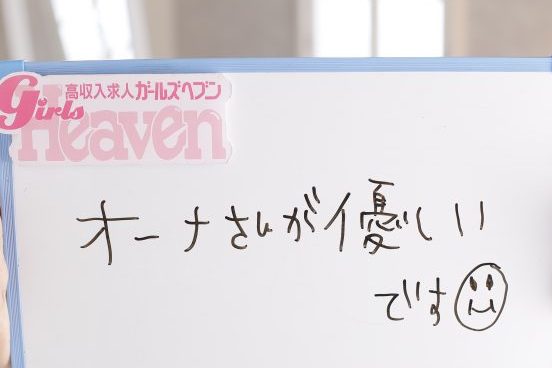 高収入求人ガールズヘブン
Girls
Heaven
オーナさんが優しい
です